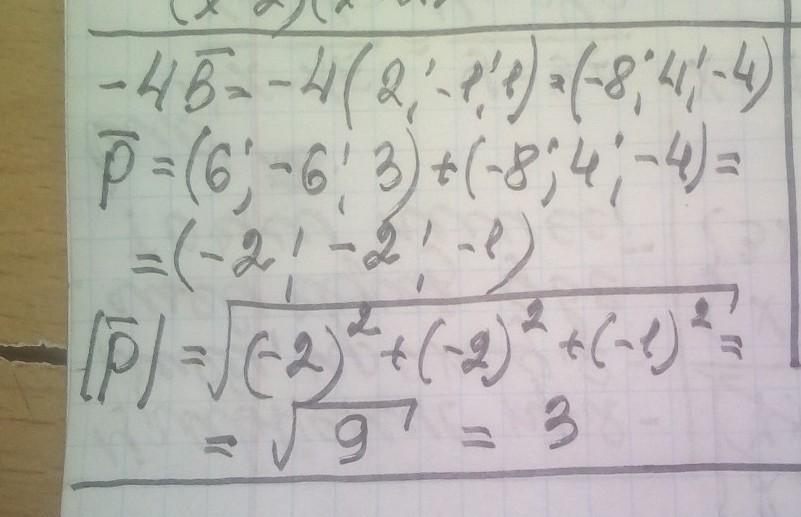 -4b̅ = -4(2; -1; 1) = (-8; 4; -4)
p̅ = (6; -6; 3) + (-8; 4; -4) =
= (-2; -2; -1)
|p̅| = √((-2)² + (-2)² + (-1)²) =
= √9 = 3